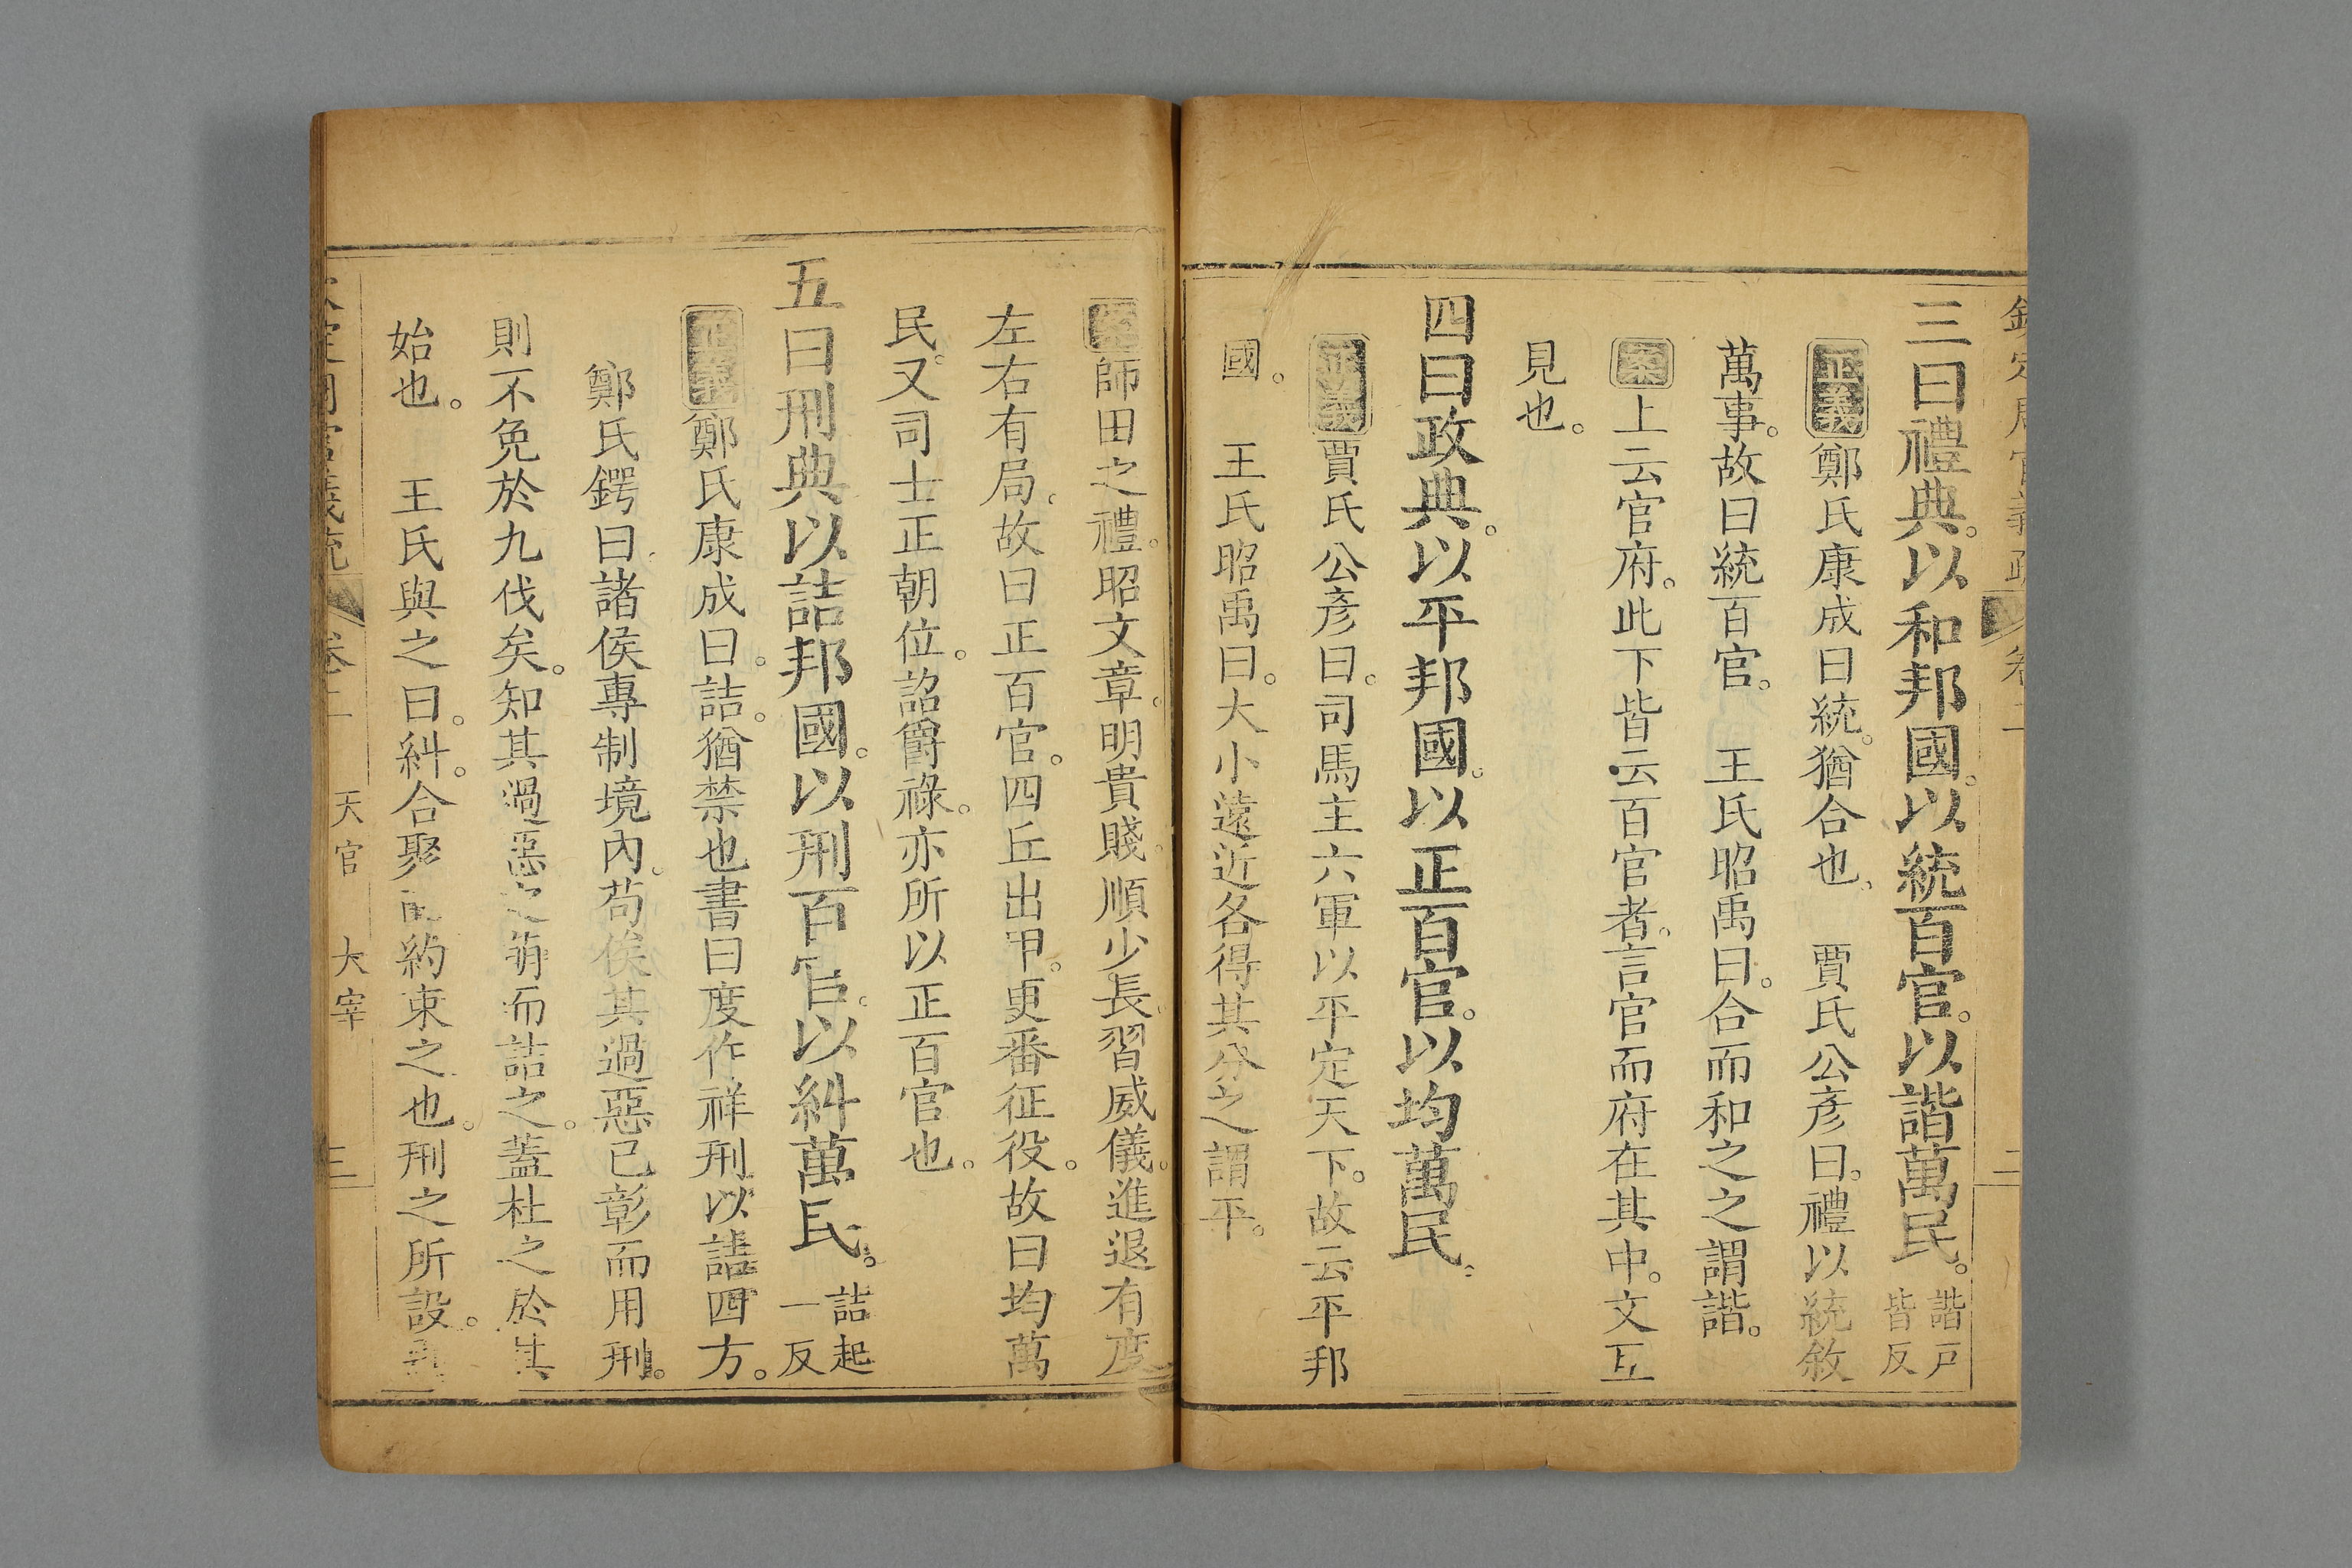 欽定周官義疏 卷二 二
三曰禮典。以和邦國。以統百官。以諧萬民。諧戶皆反
正義鄭氏康成曰統。猶合也、 賈氏公彥曰。禮以統敘
萬事。故曰統百官。 王氏昭禹曰。合而和之之謂諧。
案上云官府。此下皆云百官者。言官而府在其中。文互
見也。
四曰政典。以平邦國。以正百官。以均萬民。
正義賈氏公彥曰。司馬主六軍以平定天下。故云平邦
國。 王氏昭禹曰。大小遠近各得其分之謂平。
案師田之禮。昭文章。明貴賤。順少長。習威儀。進退有度
左右有局。故曰正百官。四丘出甲。更番征役。故曰均萬
民。又司士正朝位。詔爵祿。亦所以正百官也。
五曰刑典以詰邦國。以刑百官。以糾萬民。詰起一反
正義鄭氏康成曰。詰。猶禁也書曰度作祥刑以詰四方。
鄭氏鍔曰、諸侯專制境內。苟俟其過惡已彰而用刑。
則不免於九伐矣。知其過惡之萌而詰之。蓋杜之於其
始也。 王氏與之曰。糾。合聚而約束之也。刑之所設。
欽定周官義疏 卷二 天官 大宰 三